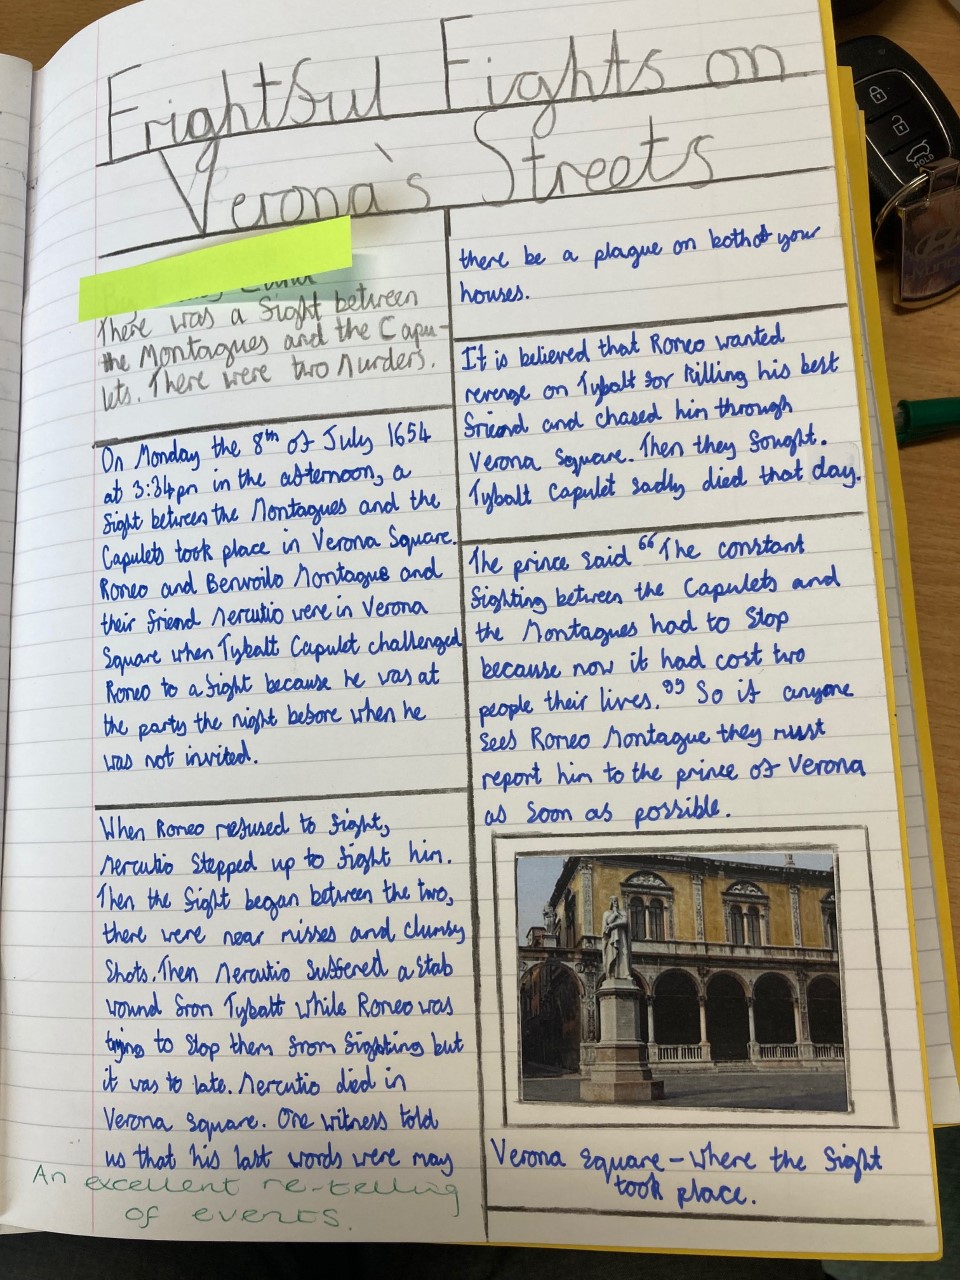 Frightful Fights on
Verona's Streets
There was a fight between
the Montagues and the Capu-
lets. There were two Murders.
On Monday the 8th of July 1654
at 3:34pm in the afternoon, a
fight between the Montagues and the
Capulets took place in Verona Square.
Romeo and Benvoilo Montague and
their friend Mercutio were in Verona
Square when Tybalt Capulet challenged
Romeo to a fight because he was at
the party the night before when he
was not invited.
When Romeo refused to fight,
Mercutio stepped up to fight him.
Then the fight began between the two,
there were near misses and clumsy
shots. Then Mercutio suffered a stab
wound from Tybalt while Romeo was
trying to stop them from fighting but
it was to late. Mercutio died in
Verona square. One witness told
us that his last words were may
there be a plague on both of your
houses.
It is believed that Romeo wanted
revenge on Tybalt for killing his best
friend and chased him through
Verona Square. Then they fought.
Tybalt Capulet sadly died that day.
The prince said “The constant
fighting between the Capulets and
the Montagues had to stop
because now it had cost two
people their lives.” So if anyone
sees Romeo Montague they must
report him to the prince of Verona
as soon as possible.
Verona Square - where the fight
took place.
An excellent re-telling
of events.
HOLD